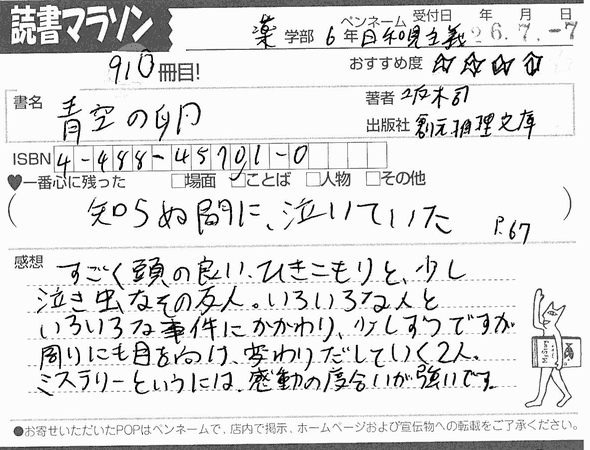 読書マラソン
薬 学部 6年 ペンネーム 日和見主義 受付日 年 月 日
26.7.-7
910冊目! おすすめ度 ☆☆☆☆
書名 青空の卵
著者 坂木司
出版社 創元推理文庫
ISBN 4-488-45701-0
♥一番心に残った □場面 □ことば □人物 □その他
(知らぬ間に、泣いていた P.67)
感想 すごく頭の良い、ひきこもりと、少し
泣き虫なその友人。いろいろな人と
いろいろな事件にかかわり、少しずつですが
周りにも目を向け、変わりだしていく2人。
ミステリーというには、感動の度合いが強いです。
●お寄せいただいたPOPはペンネームで、店内で掲示、ホームページおよび宣伝物への転載をご了承ください。